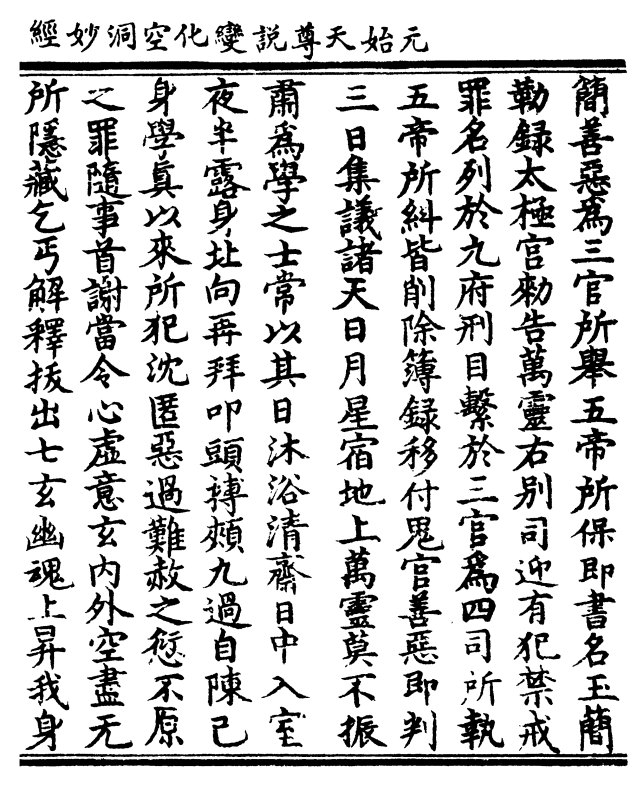 元始天尊説變化空洞妙經
簡善惡爲三官所舉五帝所保即書名玉簡
勒録太極宮勑告萬靈右別司迎有犯禁戒
罪名列於九府刑目繫於三官爲四司所執
五帝所糾皆削除簿録移付鬼官善惡即判
三日集議諸天日月星宿地上萬靈莫不振
肅爲學之士常以其日沐浴清齋日中入室
夜半露身北向再拜叩頭搏頰九過自陳己
身學真以來所犯沈匿惡過難赦之愆不原
之罪隨事首謝當令心虛意玄內外空盡无
所隱藏乞丐解釋拔出七玄幽魂上昇我身